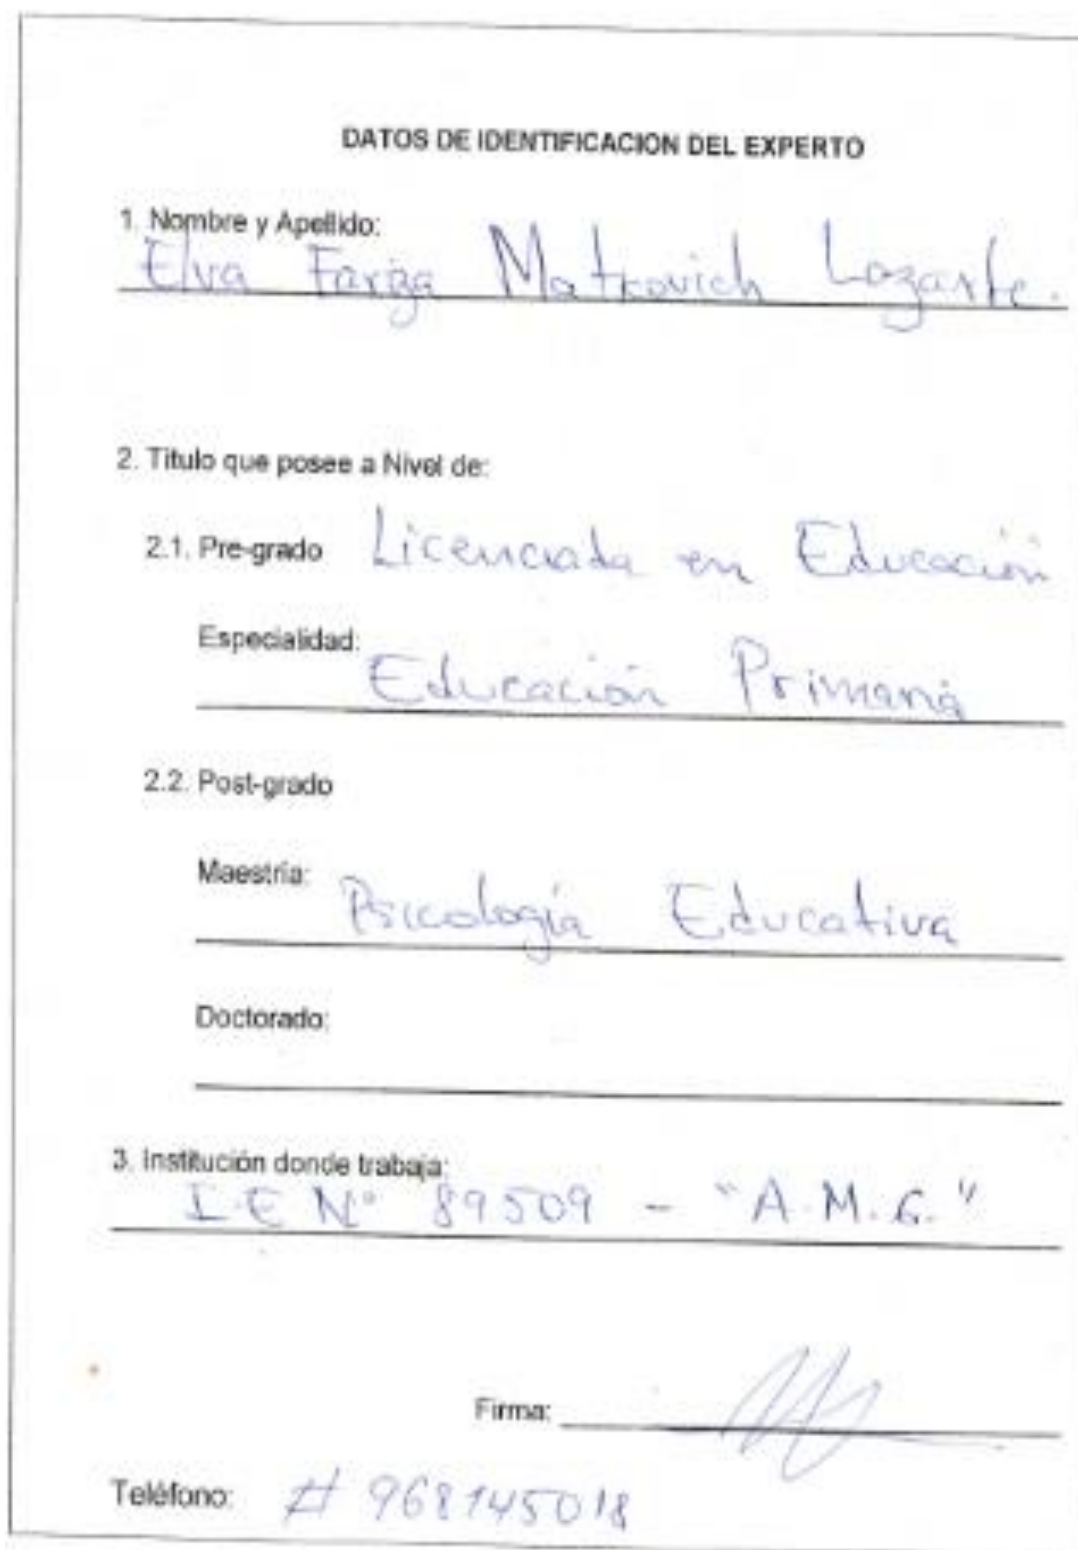 DATOS DE IDENTIFICACION DEL EXPERTO
1. Nombre y Apellido:
Elva Fariza Matkovich Lozarte.
2. Titulo que posee a Nivel de:
2.1. Pre-grado Licenciada en Educación
Especialidad:
Educación Primaria
2.2. Post-grado
Maestria:
Psicología Educativa
Doctorado:
3. Institución donde trabaja:
I.E N° 89509 - "A.M.G."
Firma:
Teléfono: # 968145018